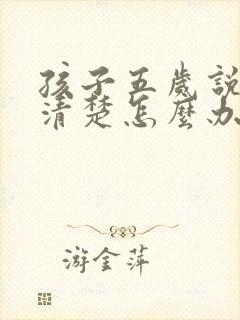 孩子五歲說
清楚怎麼办
游金萍